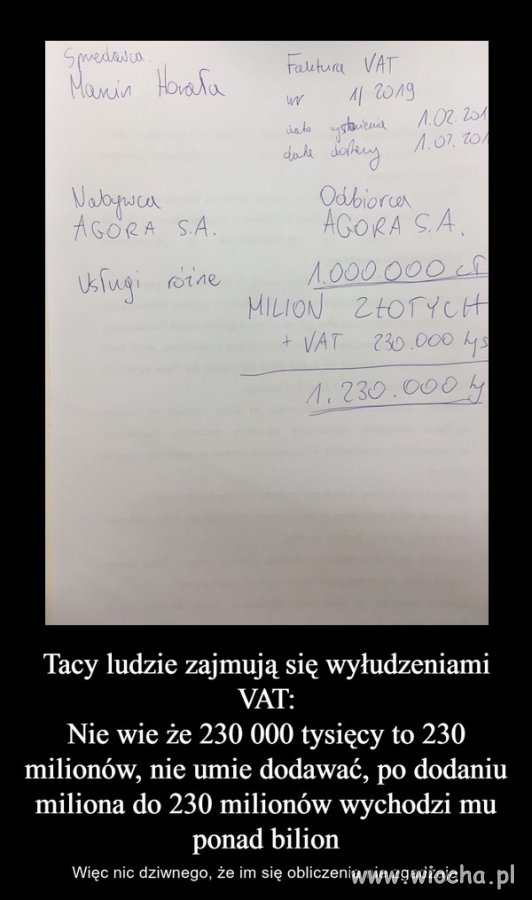 Sprzedawca:
Marcin Horała
Faktura VAT
nr 1/2019
data wystawienia 1.02.201
data dostawy 1.02.201
Nabywca
AGORA S.A.
Odbiorca
AGORA S.A.
Usługi różne 1.000.000 zł
MILION ZŁOTYCH
+ VAT 230.000 tys
1.230.000 ty
Tacy ludzie zajmują się wyłudzeniami
VAT:
Nie wie że 230 000 tysięcy to 230
milionów, nie umie dodawać, po dodaniu
miliona do 230 milionów wychodzi mu
ponad bilion
Więc nic dziwnego, że im się obliczenia nie zgadzają
www.wiocha.pl